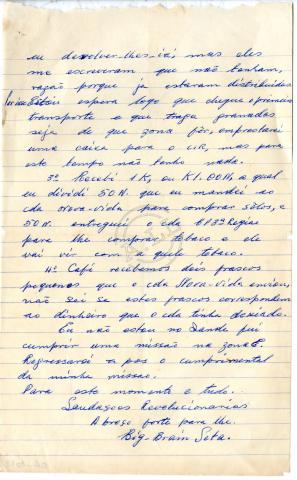 eu devolver-lhes-iá, mas eles
me escreveram que não tenham,
razão porque já estavam distribuidos
Estou espera logo que chegue o primeiro
transporte e que traga granadas
seja de que zona fôr, emprestarei
uma caixa para o CIR, mas para
este tempo não tenho nada.
3º Recebi 1K, ou K1.00N, a qual
eu dividi 50N. que eu mandei ao
cda Nova-Vida para comprar sêlos, e
50N. entreguei o cda 3ª Região
para lhe comprar tabaco e ele
vai vir com a quele tabaco.
4º Café recebemos dois frascos
pequenos que o cda Nova-Vida enviou,
não sei se estes frascos correspondem
ao dinheiro que o cda tinha deixado.
Eu não estou no fui
cumprir uma missão na zona
Regressarei a pos o cumprimental
da minha missão.
Para este momento e tudo.
Saudações Revolucionarias
Abraço forte para lhe.
Big-Brain Seta.